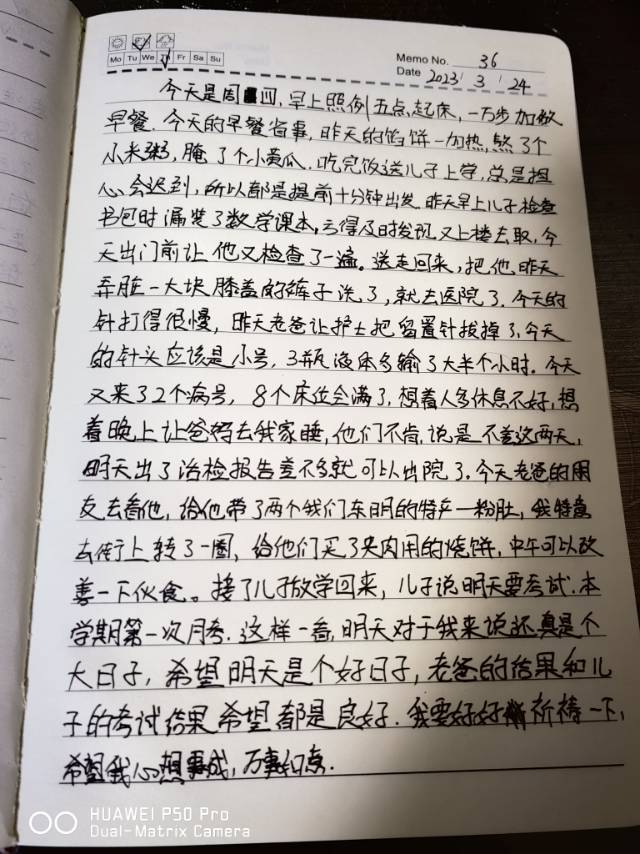 Mo Tu We Th Fr Sa Su
Memo No. 36
Date 2023 / 3 / 24
今天是周四,早上照例五点起床,一万步加做
早餐.今天的早餐省事,昨天的馅饼一加热,熬了个
小米粥,腌了个小黄瓜.吃完饭送儿子上学,总是担
心会迟到,所以都是提前十分钟出发.昨天早上儿子检查
书包时漏装了数学课本,亏得及时发现又上楼去取,今
天出门前让他又检查了一遍。送走回来,把他昨天
弄脏一大块膝盖的裤子洗了,就去医院了.今天的
针打得很慢,昨天老爸让护士把留置针拔掉了,今天
的针头应该是小号,3瓶液体多输了大半个小时.今天
又来了2个病号,8个床位全满了,想着人多休息不好,想
着晚上让爸妈去我家睡,他们不肯,说是不差这两天,
明天出了活检报告差不多就可以出院了.今天老爸的朋
友去看他,给他带了两个我们东明的特产—粉肚,我特意
去街上转了一圈,给他们买了夹肉用的烧饼,中午可以改
善一下伙食。接了儿子放学回来,儿子说明天要考试.本
学期第一次月考.这样一看,明天对于我来说还真是个
大日子,希望明天是个好日子,老爸的结果和儿
子的考试结果希望都是良好.我要好好祈祷一下,
希望我心想事成,万事如意.
HUAWEI P50 Pro
Dual-Matrix Camera